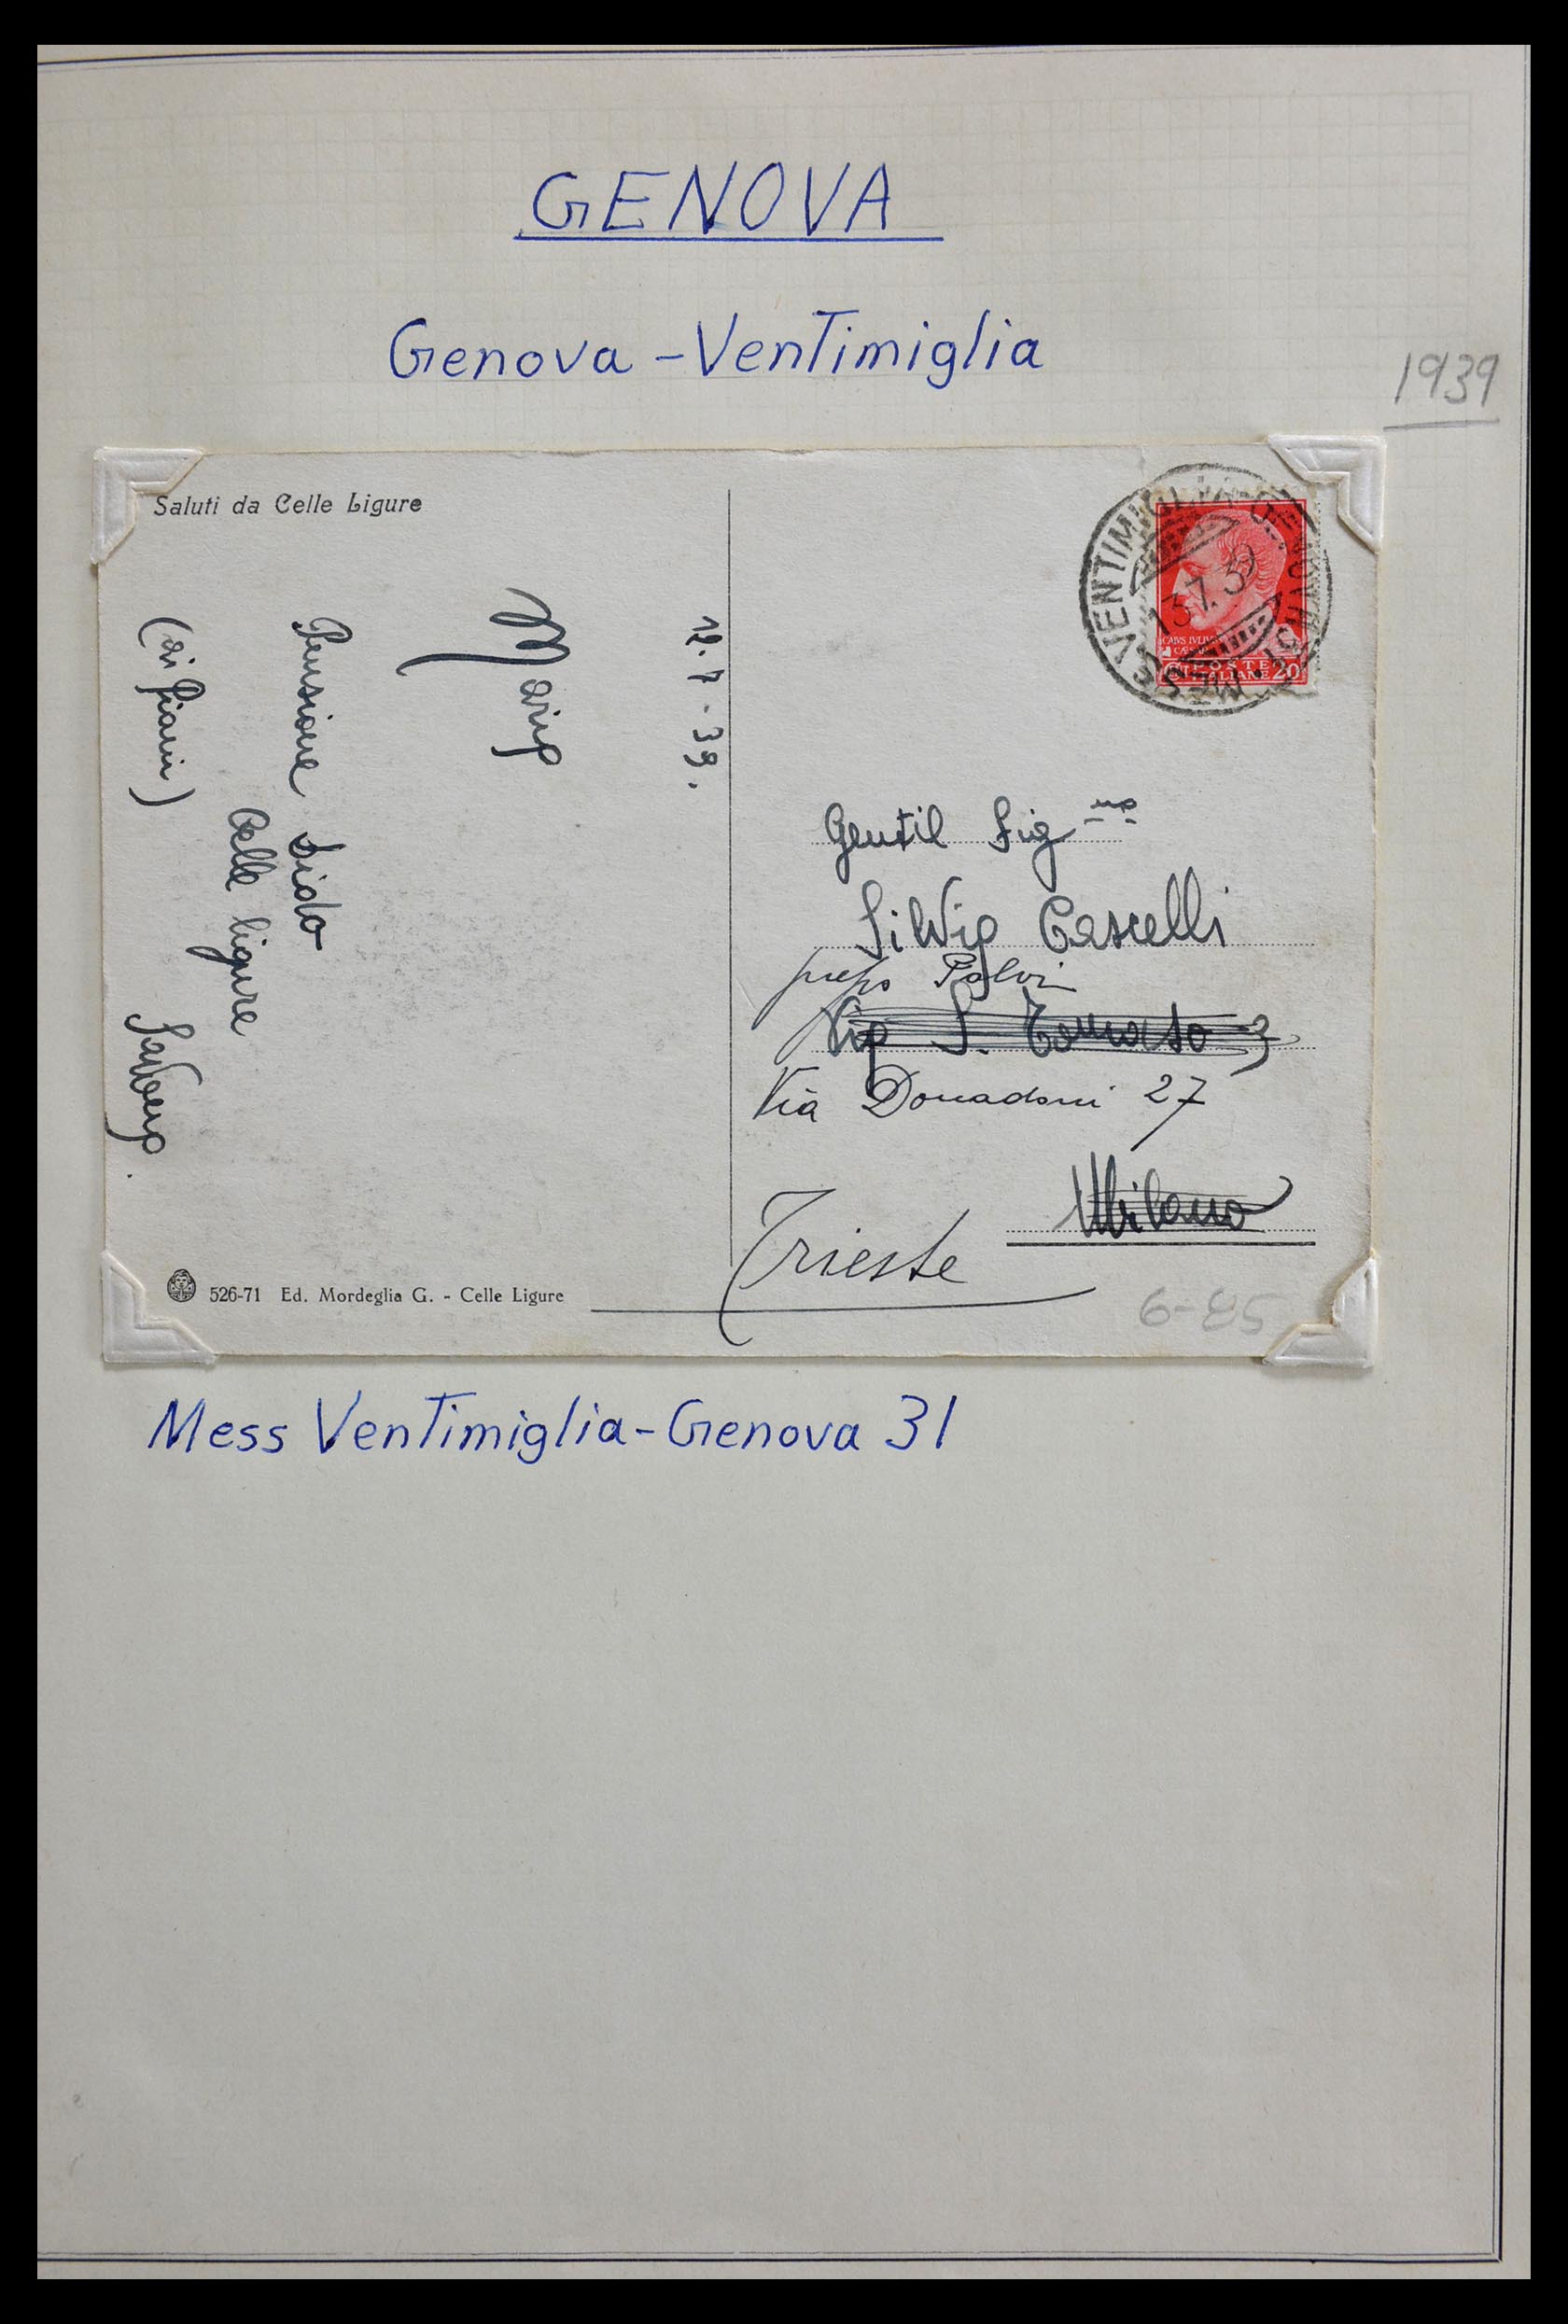 GENOVA
Genova - Ventimiglia
1939
Saluti da Celle Ligure
12.7.39.
Maria
Pensione Lido
Celle Ligure
(ai Piani)
Savona.
VENTIMIGLIA-GENOVA 31 MESS
13.7.39
CAIVS IVLIVS
CAESAR
POSTE
ITALIANE
C 20
Gentil Sig.na
Silvia Cascelli
presso Polvi
Via S. Tomaso 3
Via Donadoni 27
Milano
Trieste
526-71 Ed. Mordeglia G. - Celle Ligure
6-85
Mess Ventimiglia-Genova 31